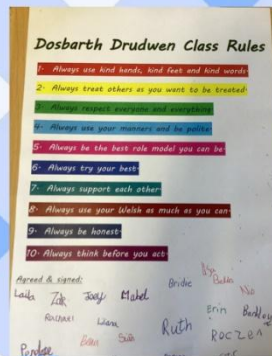 Dosbarth Drudwen Class Rules
1- Always use kind hands, kind feet and kind words-
2- Always treat others as you want to be treated-
3- Always respect everyone and everything
4- Always use your manners and be polite-
5- Always be the best role model you can be-
6- Always try your best-
7- Always support each other-
8- Always use your Welsh as much as you can-
9- Always be honest-
10- Always think before you act-
Agreed & signed:
Laila Zak Joey Mabel Bridie
Rachael Ruth Erin